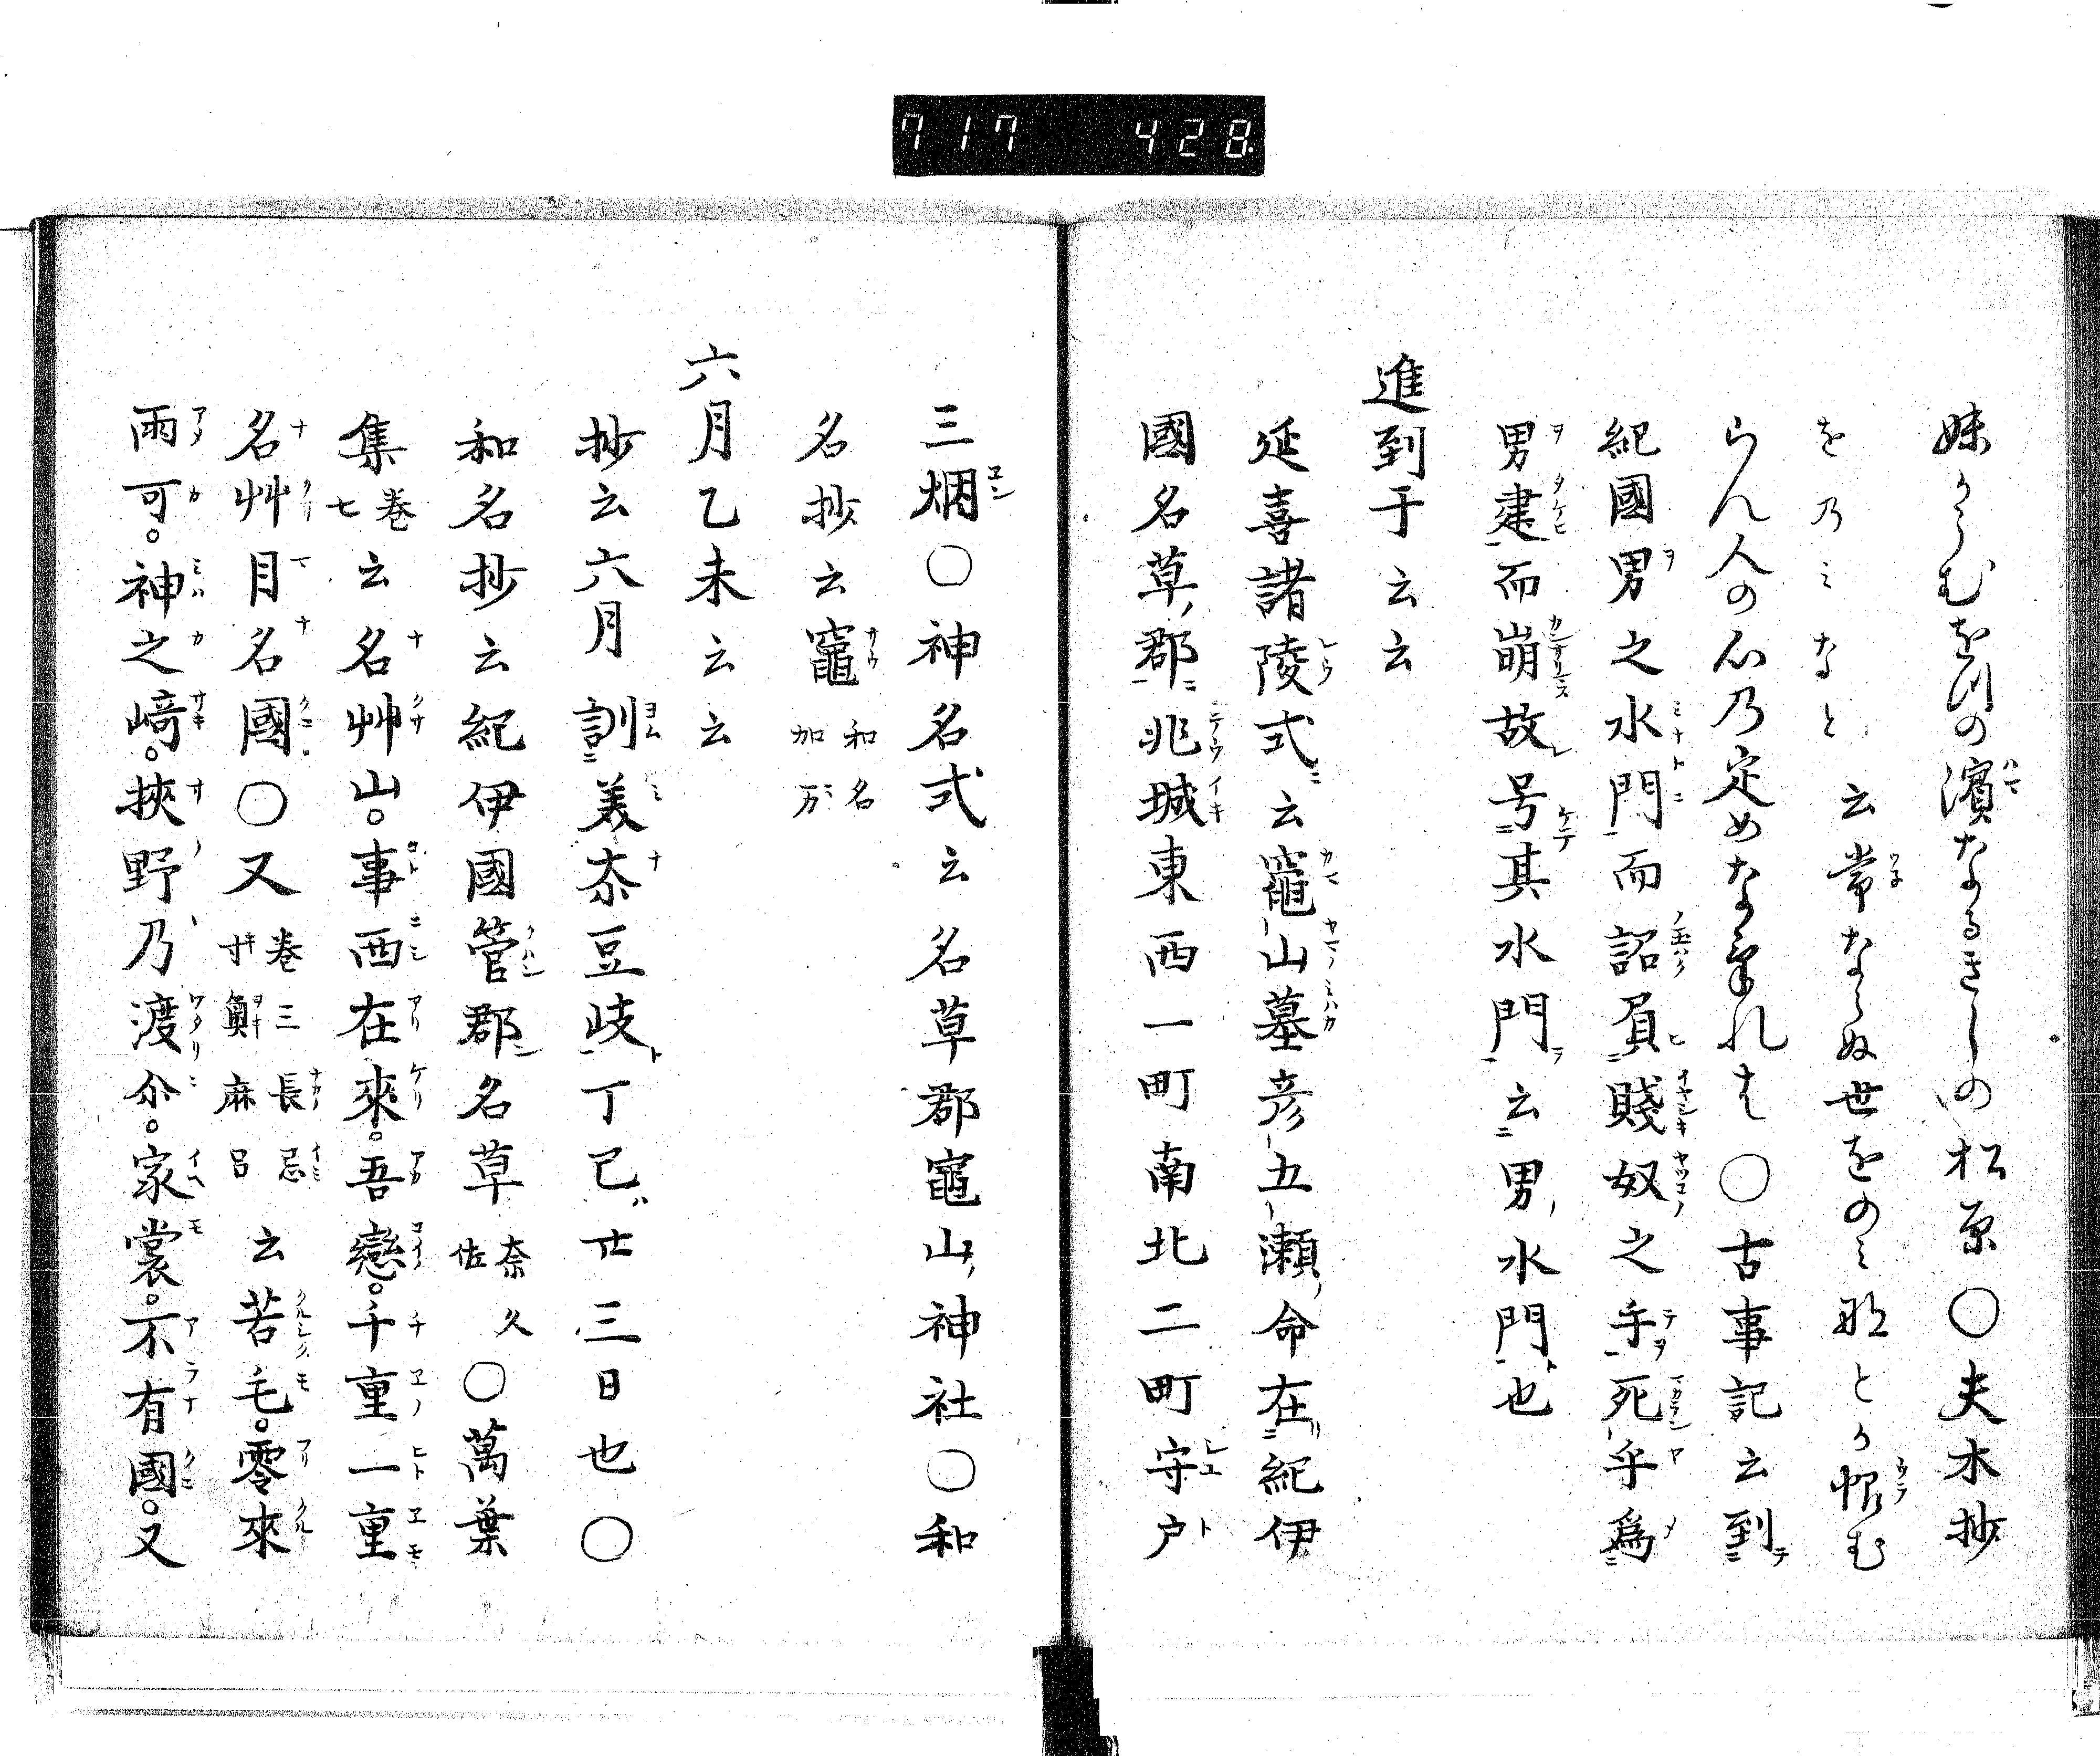 717 428
妹かうむをみつの濱なるきしの松原〇夫木抄
をのミなと云常ならぬ世をのミ那とか恨む
らん人の心乃定めなけれは〇古事記云到
紀國男之水門而詔負賤奴之手死乎為
男建而崩故号其水門云男水門也
進到于云云
延喜諸陵式云竈山墓彦五瀬命在紀伊
國名草郡兆域東西一町南北二町守戸
三烟〇神名式云名草郡竈山神社〇和
名抄云竈和名加万
六月乙未云云
抄云六月訓美奈豆岐丁巳廿三日也〇
和名抄云紀伊國管郡名草奈久佐〇萬葉
集巻七云名艸山。事西在來。吾戀。千重一重
名艸目名國〇又巻三長忌寸奥麻呂云苦毛。零來
雨可。神之﨑。挾野乃渡尒。家裳。不有國。又